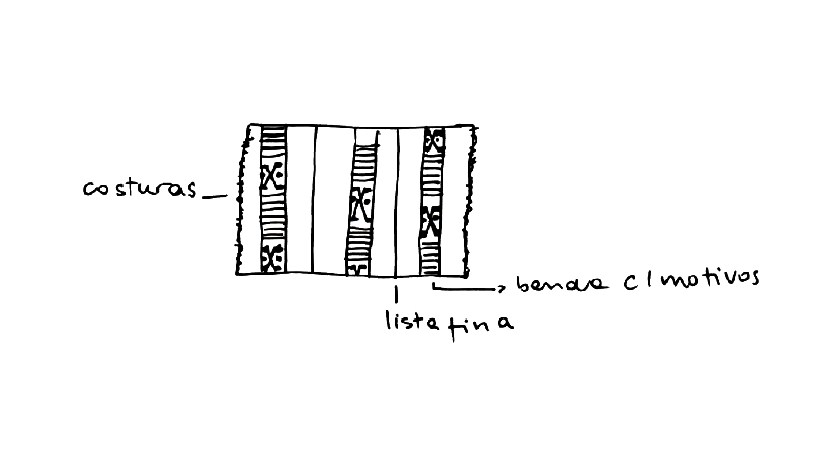 costuras
banda c/motivos
lista fina